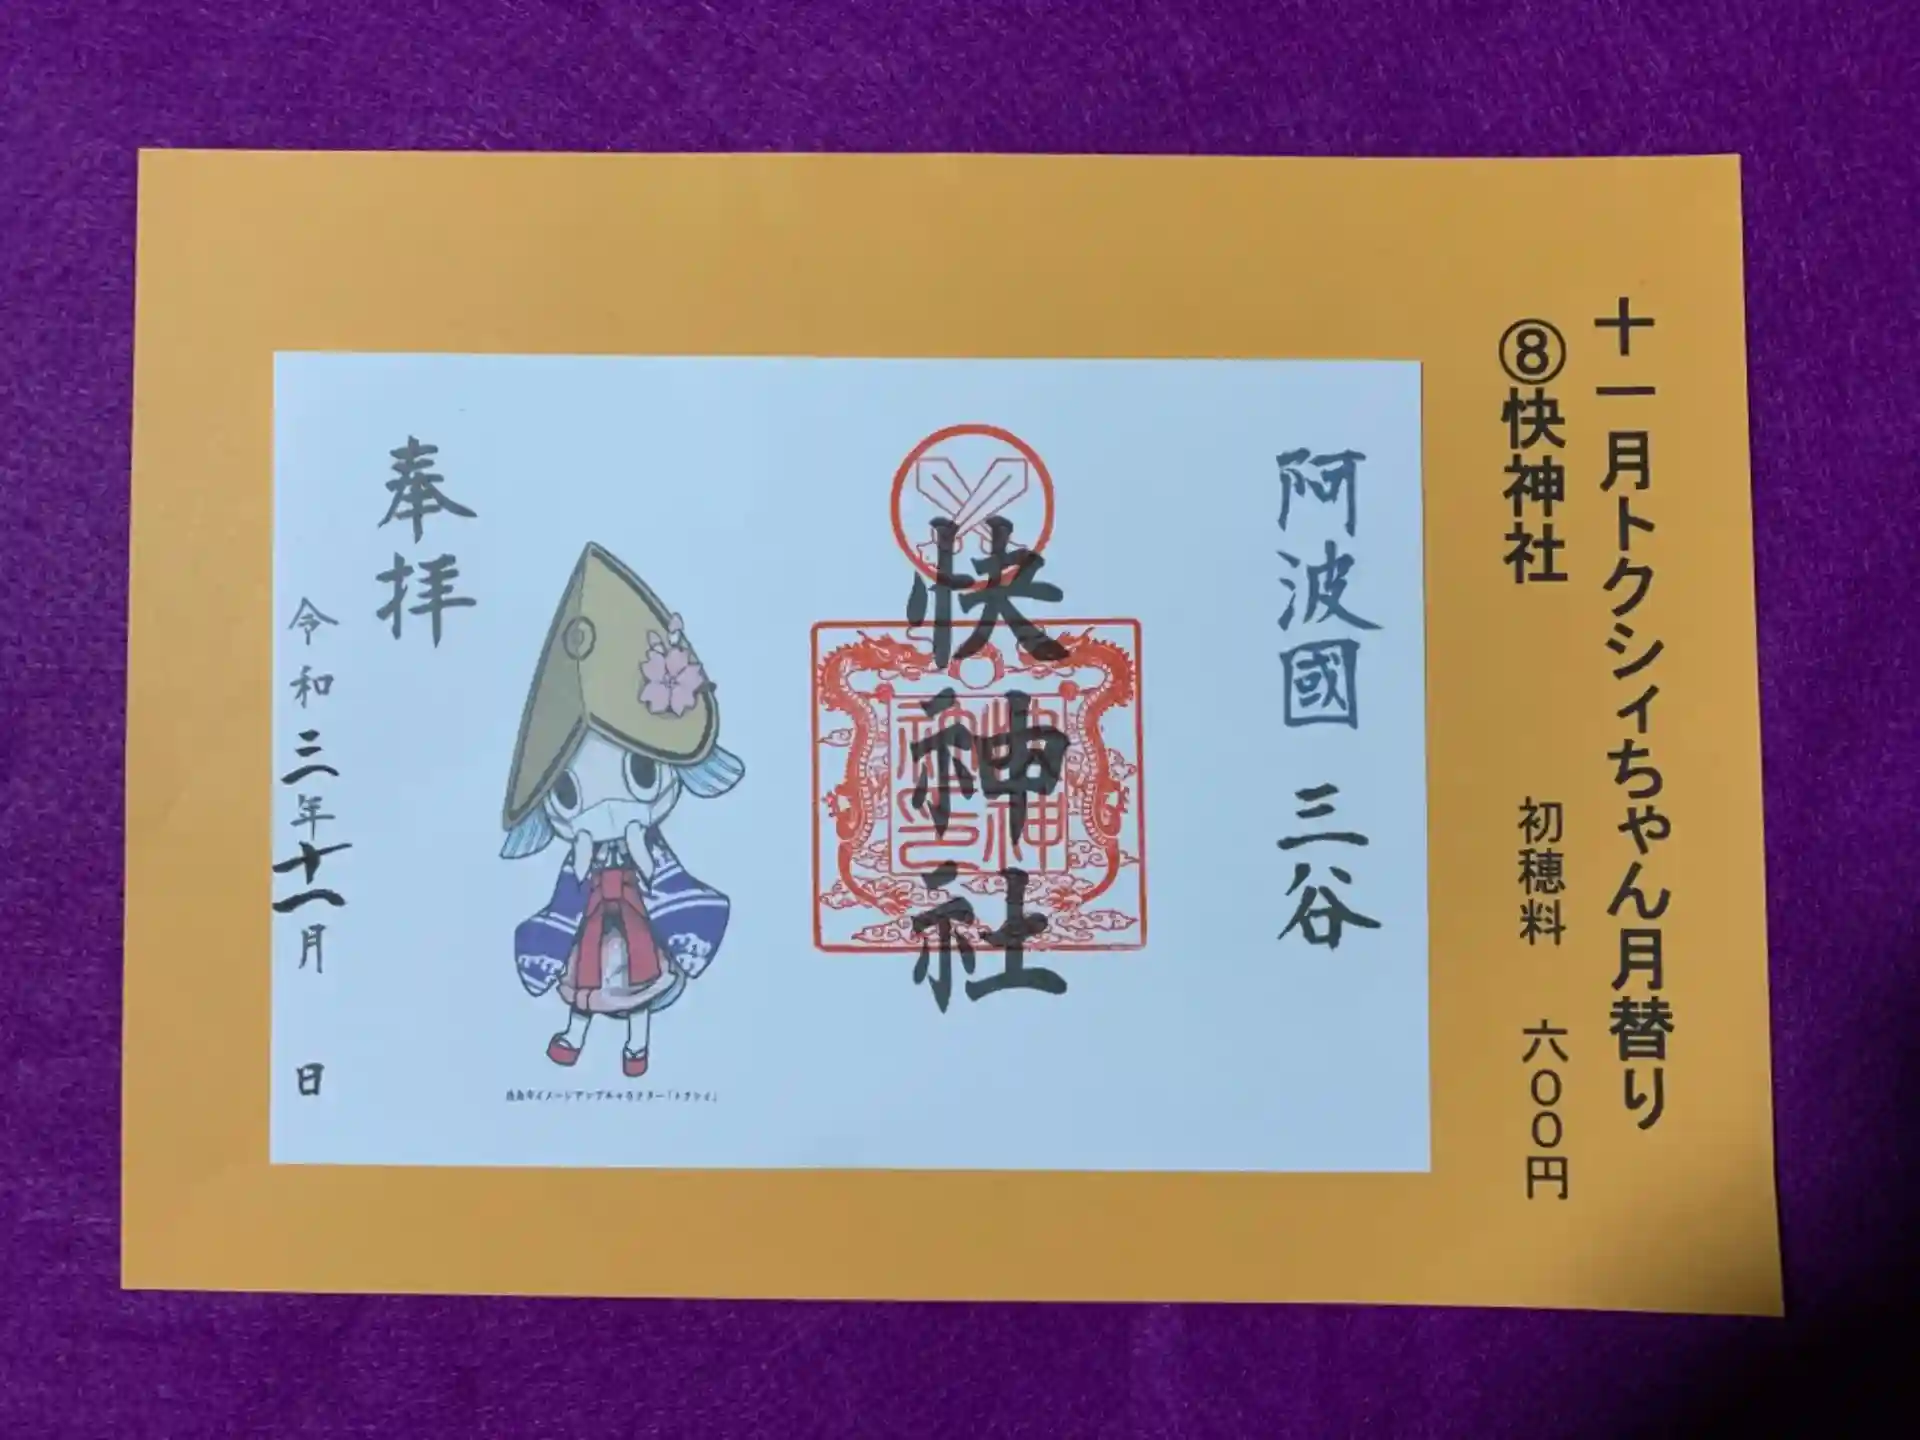 十一月トクシィちゃん月替り
⑧快神社　初穂料　六００円
阿波國　三谷
快神社
奉拝
令和三年十一月　日
イメージアップキャラクター「トクシィ」